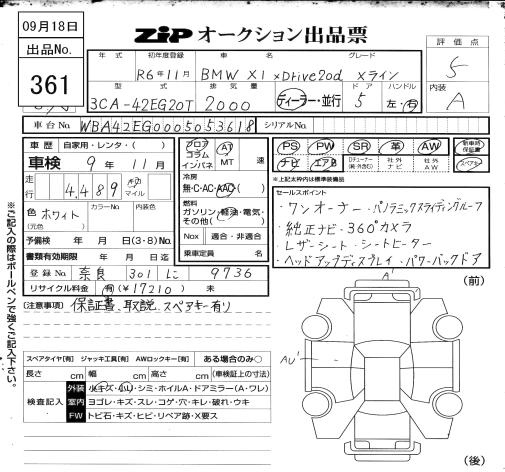 09月18日
出品No.
361
ZIP オークション出品票
年式 初年度登録 車名 グレード
R6年11月 BMW X1 xDrive20d Xライン
型式 排気量 ドア ハンドル
3CA-42EG20T 2000 ディーラー・並行 5 左・右
評価点
5
内装
A
車台No. WBA42EG0005053618 シリアルNo.
車歴 自家用・レンタ・( )
車検 9年11月
走行 4,489 km マイル
色 ホワイト カラーNo. 内装色
(元色)
予備検 年 月 日(3・8)No.
書類有効期限 年 月 日迄
登録No. 奈良 301 に 9736
リサイクル料金 有(¥17210) 未
フロア AT
コラム
インパネ MT 速
冷房
無・C・AC・AAC( )
燃料
ガソリン・軽油・電気・
その他( )
Nox 適合・非適合
乗車定員 名
PS PW SR 革 AW 新車時保証書
ナビ エアB 社外ナビ 社外AW スペアキー
※上記太枠内は標準装備品
セールスポイント
・ワンオーナー・パノラミックスライディングルーフ
・純正ナビ・360°カメラ
・レザーシート・シートヒーター
・ヘッドアップディスプレイ・パワーバックドア
(注意事項) 保証書、取説、スペアキー有り
※ご記入の際はボールペンで強くご記入下さい。
スペアタイヤ[有] ジャッキ工具[有] AWロックキー[有] ある場合のみ○
長さ cm 幅 cm 高さ cm (車検証上の寸法)
検査記入
外装 小キズ・凹・シミ・ホイルA・ドアミラー(A・ワレ)
室内 ヨゴレ・キズ・スレ・コゲ・穴・キレ・破れ・ウキ
FW トビ石・キズ・ヒビ・リペア跡・X要ス
A'
(前)
AU'
(後)